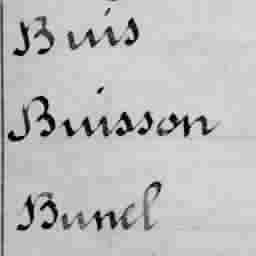 Buis
Buisson
Bunel